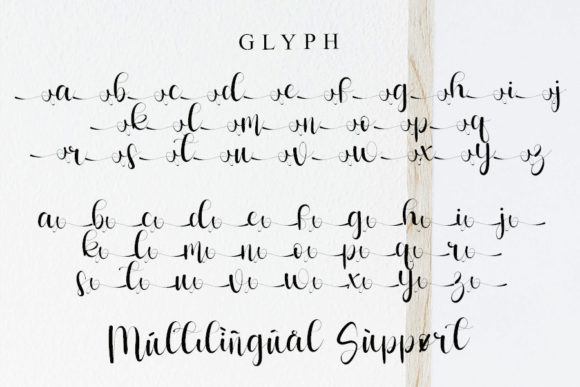 GLYPH
a b c d e f g h i j
k l m n o p q
r s t u v w x y z
a b c d e f g h i j
k l m n o p q r
s t u v w x y z
Múltilïñgúål Sùppørt